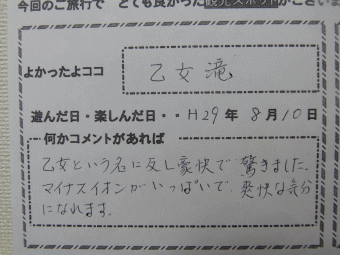 今回のご旅行で とても良かった観光スポットがござい
よかったよココ 乙女滝
遊んだ日・楽しんだ日・・H29年 8月10日
何かコメントがあれば
乙女という名に反し豪快で 驚きました。
マイナスイオンがいっぱいで、爽快な気分
になれます。